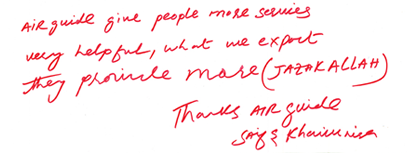 AIR guide give people more services
very helpful, what we expect
they provide more (JAZAKALLAH)
Thanks AIR guide
Saif &